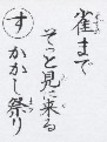 雀まで
そっと見に来る
す かかし祭り